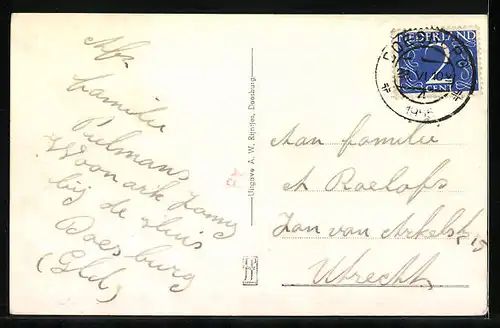 Afz
familie
Pielmans
Woonark Jomy
bij de sluis
Doesburg
(Gld)
Uitgave A. W. Rijntjes, Doesburg
NEDERLAND
2
CENT
Aan familie
A Roelofs
Jan van Arkelstr 15
Utrecht